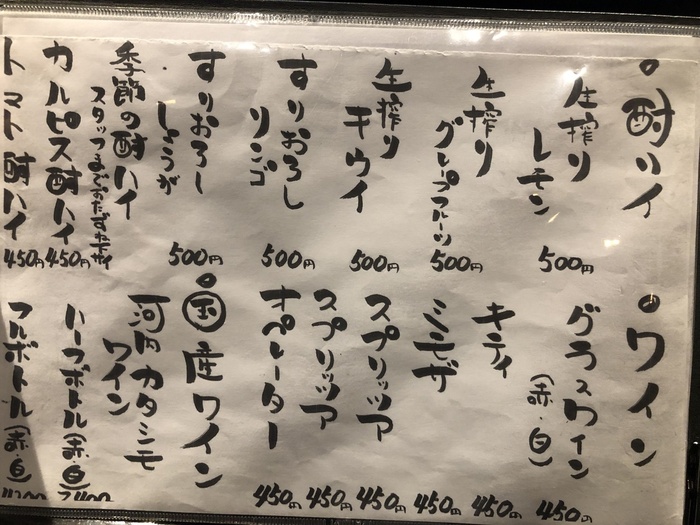 酎ハイ
生搾り
レモン
500円
生搾り
グレープフルーツ
500円
生搾り
キウイ
500円
すりおろし
リンゴ
500円
すりおろし
しょうが
500円
季節の酎ハイ
スタッフまでおたずね下さい
カルピス酎ハイ
450円
トマト酎ハイ
450円
ワイン
グラスワイン
(赤・白)
450円
キティ
450円
ミモザ
450円
スプリッツア
450円
スプリッツア
450円
オペレーター
450円
国産ワイン
河内カタシモ
ワイン
ハーフボトル(赤・白)
フルボトル(赤・白)